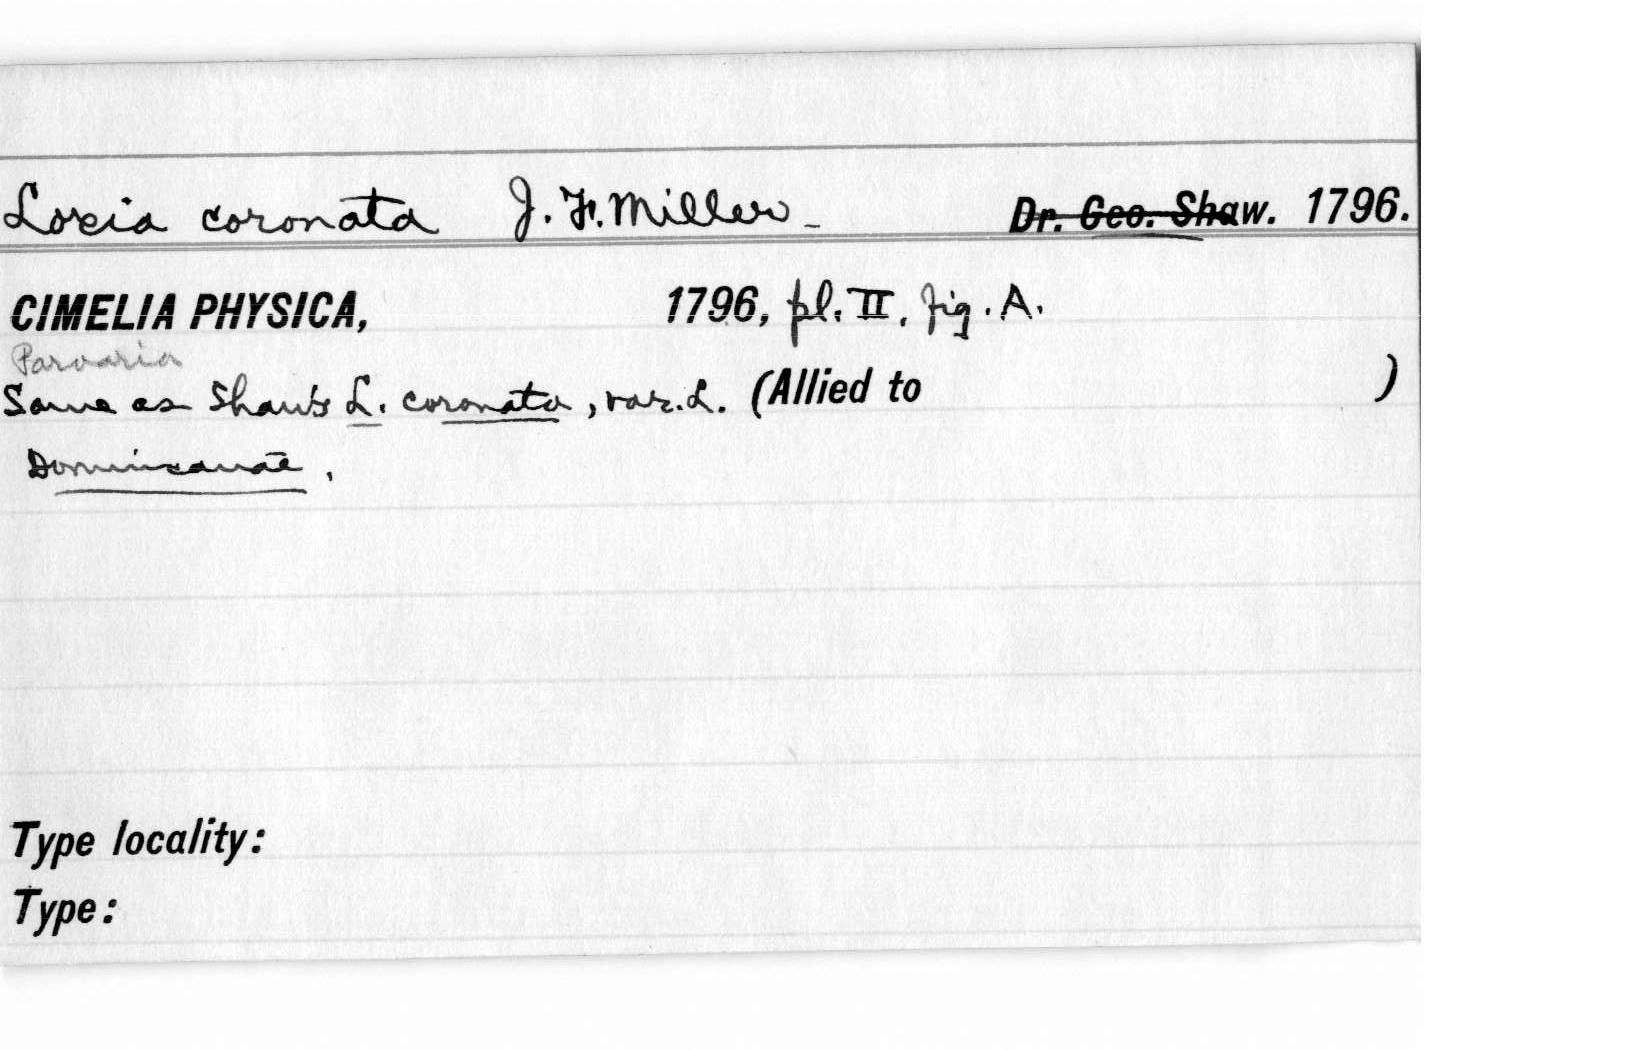 Loxia coronata J. F. Miller - Dr. Geo. Shaw. 1796.
CIMELIA PHYSICA, 1796, pl. II, fig. A.
Paroaria
Same as Shaw's L. coronata, var. L. (Allied to )
Dominicanae.
Type locality:
Type: